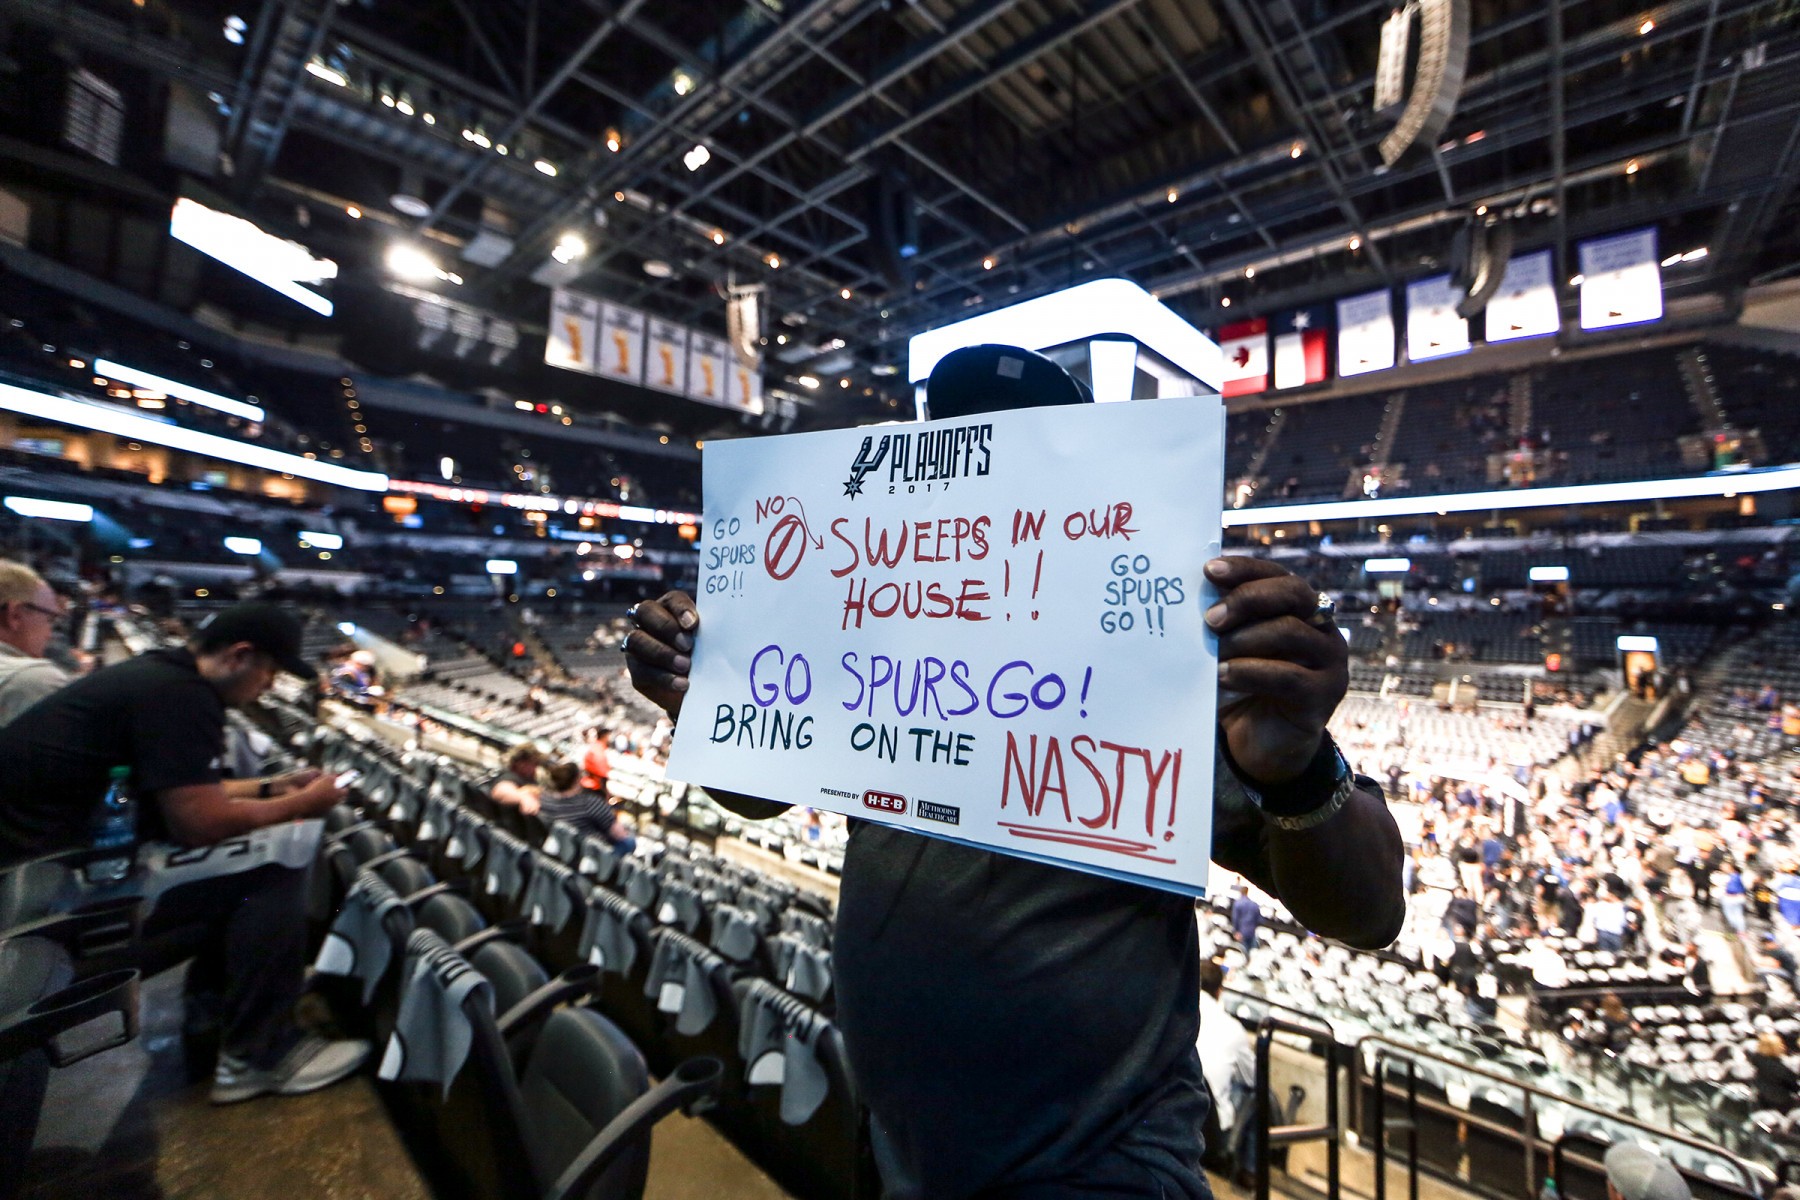 PLAYOFFS
2017
NO
SWEEPS IN OUR
HOUSE!!
GO
SPURS
GO!!
GO
SPURS
GO!!
GO SPURS GO!
BRING ON THE NASTY!
PRESENTED BY H-E-B METHODIST
HEALTHCARE